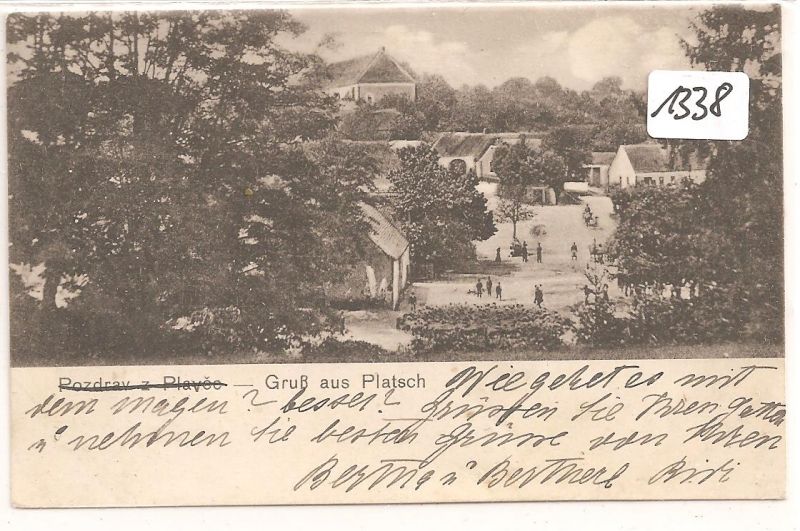 1338
Pozdrav z Plavče — Gruß aus Platsch
Wie gehet es mit
dem magen? besser? Grüssen Sie Ihren gatten
u nehmen Sie besten Grüsse von Ihren
Bertha u